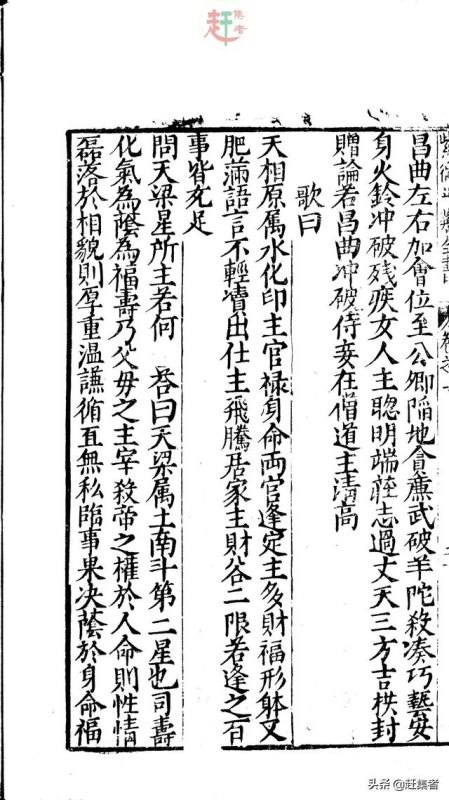 集者
赶
昌曲左右加會位至公卿陷地貪廉武破羊陀殺湊巧藝安
身火鈴冲破残疾女人主聰明端莊志過丈夫三方吉拱封
贈論若昌曲冲破侍妾在僧道主清高
歌曰
天相原属水化印主官禄身命両宫逢定主多財福形躰又
肥滿語言不輕瀆出仕主飛騰居家主財谷二限若逢之百
事皆充足
問天梁星所主若何 答曰天梁属土南斗第二星也司壽
化氣為蔭為福壽乃父母之主宰殺帝之權於人命則性情
磊落於相貌則厚重温謙循直無私臨事果决蔭於身命福
头条 @赶集者